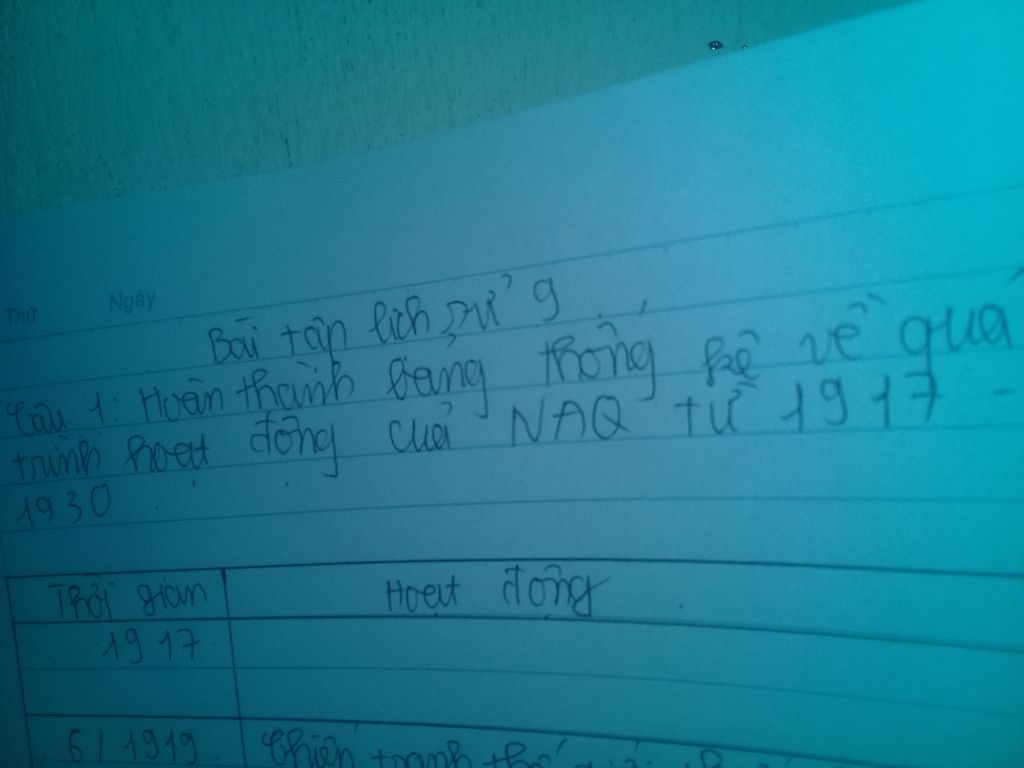 Thứ Ngày
Bài tập lịch sử 9
Câu 1: Hoàn thành bảng thống kê về quá
trình hoạt động của NAQ từ 1917 -
1930
Thời gian Hoạt động
1917
6/1919 Chiến tranh thế